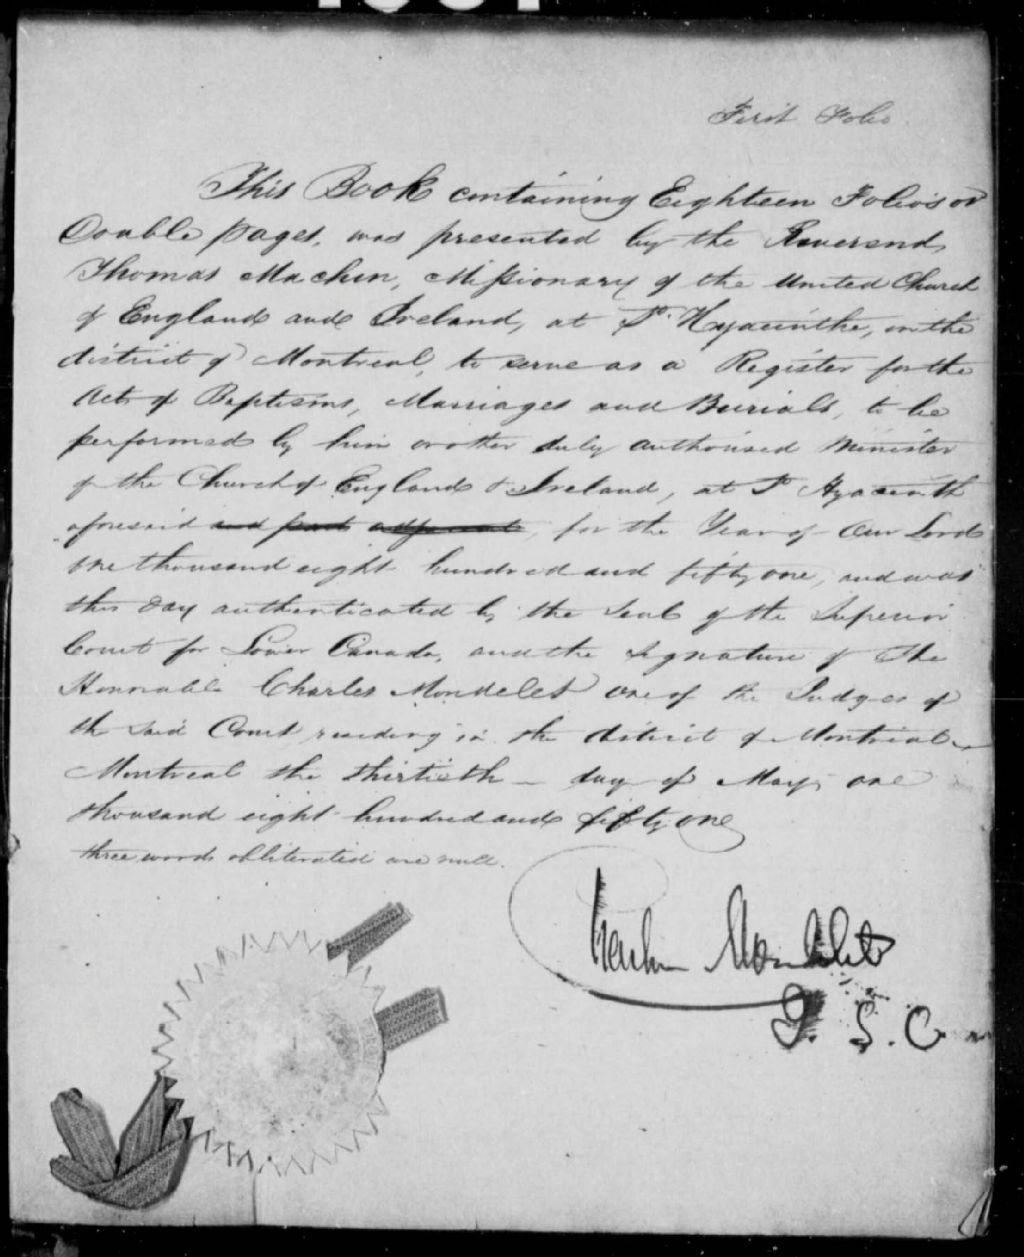 First Folio
This Book containing Eighteen Folio's or
Double pages, was presented by the Reverend
Thomas Machin, Missionary of the United Church
of England and Ireland, at St. Hyacinthe, in the
district of Montreal, to serve as a Register for the
Acts of Baptisms, Marriages and Burials, to be
performed by him or other duly authorised Minister
of the Church of England & Ireland, at St Hyacinth
aforesaid and parts adjacent, for the Year of Our Lord
one thousand eight hundred and fifty one, and was
this day authenticated by the Seal of the Superior
Court for Lower Canada, and the Signature of The
Honorable Charles Mondelet one of the Judges of
the said Court residing in the district of Montreal
Montreal the thirtieth — day of May, one
thousand eight hundred and fifty one
three words obliterated are null.
Charles Mondelet
J. S. C.